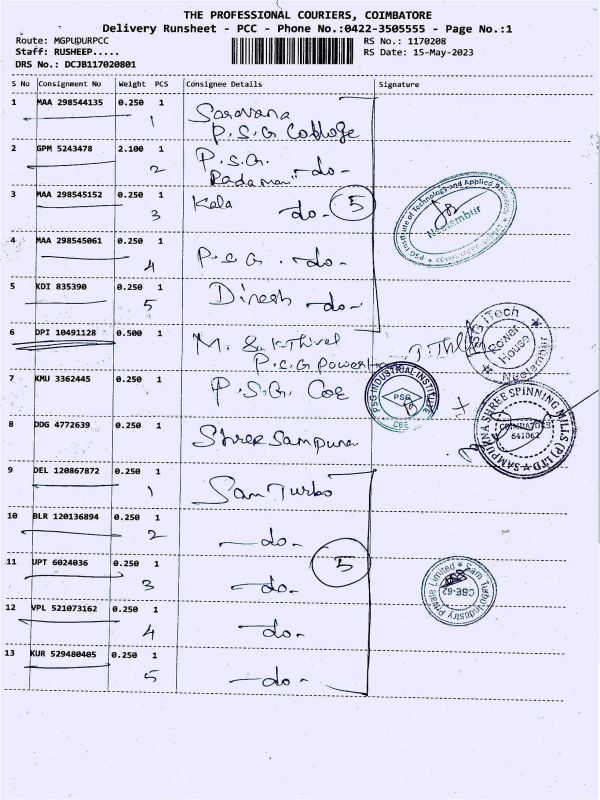 THE PROFESSIONAL COURIERS, COIMBATORE
Delivery Runsheet - PCC - Phone No.:0422-3505555 - Page No.:1
Route: MGPUPURPCC RS No.: 1170208
Staff: RUSHEEP..... RS Date: 15-May-2023
DRS No.: DCJB117020801
S No Consignment No Weight PCS Consignee Details Signature
1 MAA 298544135 0.250 1 Saravana
1 P.S.G College
2 GPM 5243478 2.100 1 P.S.G.
2 -do-
3 MAA 298545152 0.250 1 Kala -do- 5
3
4 MAA 298545061 0.250 1
4 P.S.G. -do-
5 KDI 835390 0.250 1 Dinesh -do-
5
6 DPI 10491128 0.500 1 M.
P.S.G
7 KMU 3362445 0.250 1 P.S.G. COE
8 DDG 4772639 0.250 1
Shree Sampurna
9 DEL 120867872 0.250 1
1 Sam Turbo
10 BLR 120136894 0.250 1
2 -do-
11 UPT 6024036 0.250 1 5
3 -do-
12 VPL 521073162 0.250 1
4 -do-
13 KUR 529480405 0.250 1
5 -do-
PSG Institute of Technology and Applied Research
Neelambur
PSG iTech
Power
House
Neelambur
PSG-INDUSTRIAL INSTITUTE
PSG
CBE
SAMPURNA SHREE SPINNING MILLS (P) LTD
COIMBATORE
641062
Sam Turbo Industry Private Limited
CBE-62